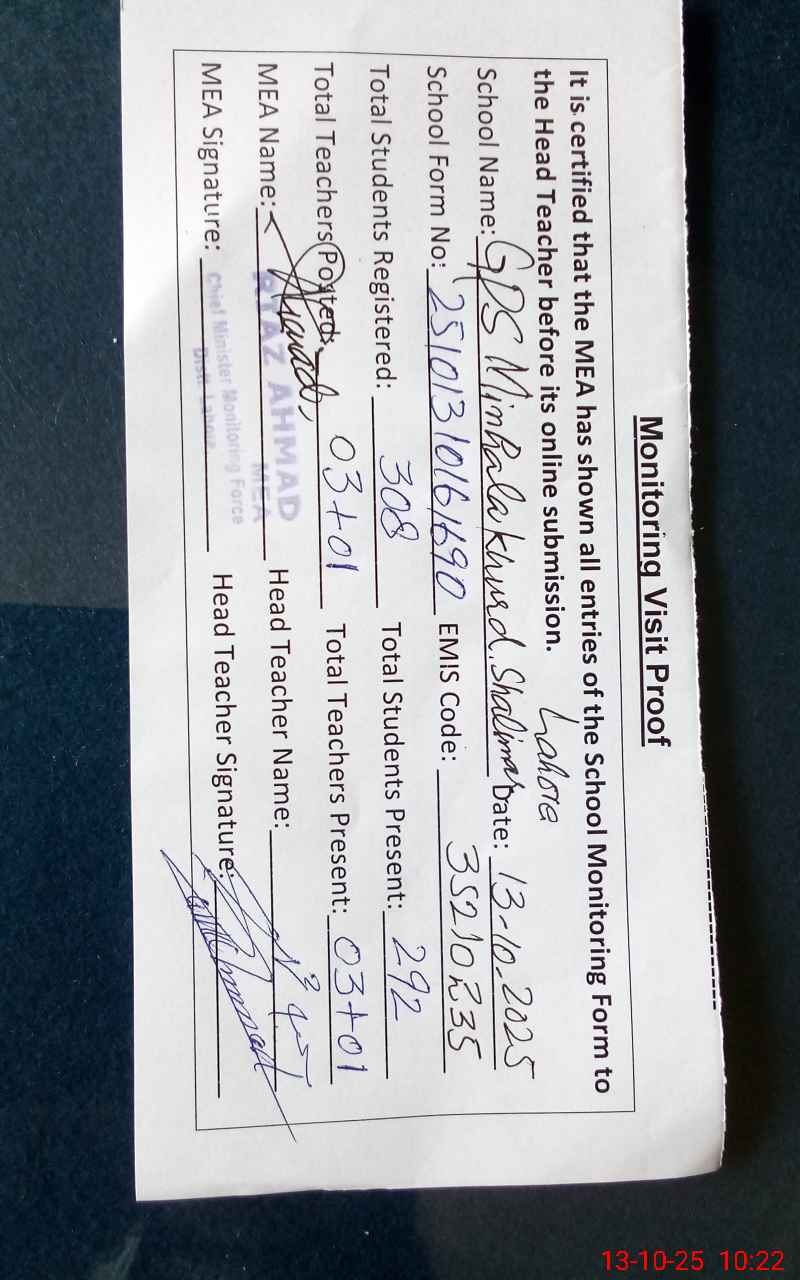 Monitoring Visit Proof
It is certified that the MEA has shown all entries of the School Monitoring Form to
the Head Teacher before its online submission.
Lahore
School Name: GPS Minhala Khurd. Shalimar Date: 13-10-2025
School Form No: 25101310161690 EMIS Code: 35210235
Total Students Registered: 308 Total Students Present: 292
Total Teachers Posted: 03+01 Total Teachers Present: 03+01
MEA Name: RIAZ AHMAD Head Teacher Name:
MEA
MEA Signature: Head Teacher Signature:
Chief Minister Monitoring Force
Distt. Lahore
13-10-25 10:22